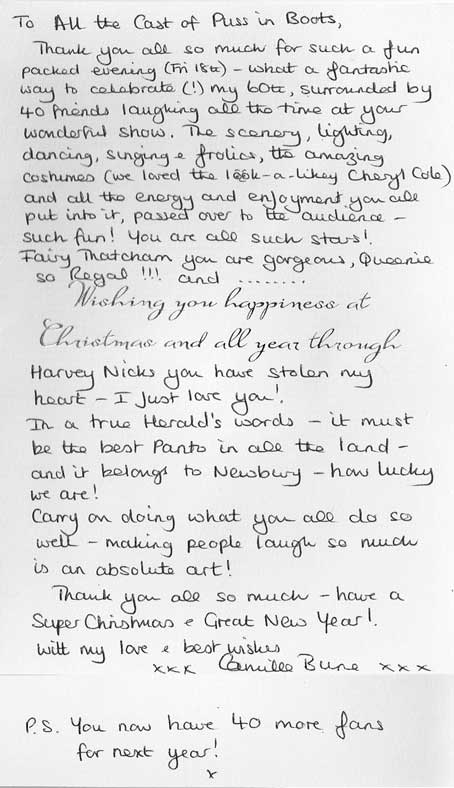 To All the Cast of Puss in Boots,
Thank you all so much for such a fun
packed evening (Fri 18th) – what a fantastic
way to celebrate (!) my 60th, surrounded by
40 friends laughing all the time at your
wonderful show. The scenery, lighting,
dancing, singing & frolics, the amazing
costumes (we loved the look-a-likey Cheryl Cole)
and all the energy and enjoyment you all
put into it, passed over to the audience –
such fun! You are all such stars!
Fairy Thatcham you are gorgeous, Queenie
so Regal !!! and ........
Wishing you happiness at
Christmas and all year through
Harvey Nicks you have stolen my
heart – I just love you!
In a true Herald's words – it must
be the best Panto in all the land –
and it belongs to Newbury – how lucky
we are!
Carry on doing what you all do so
well – making people laugh so much
is an absolute art!
Thank you all so much – have a
Super Christmas & Great New Year!
With my love & best wishes
xxx Camilla xxx
P.S. You now have 40 more fans
for next year!
x